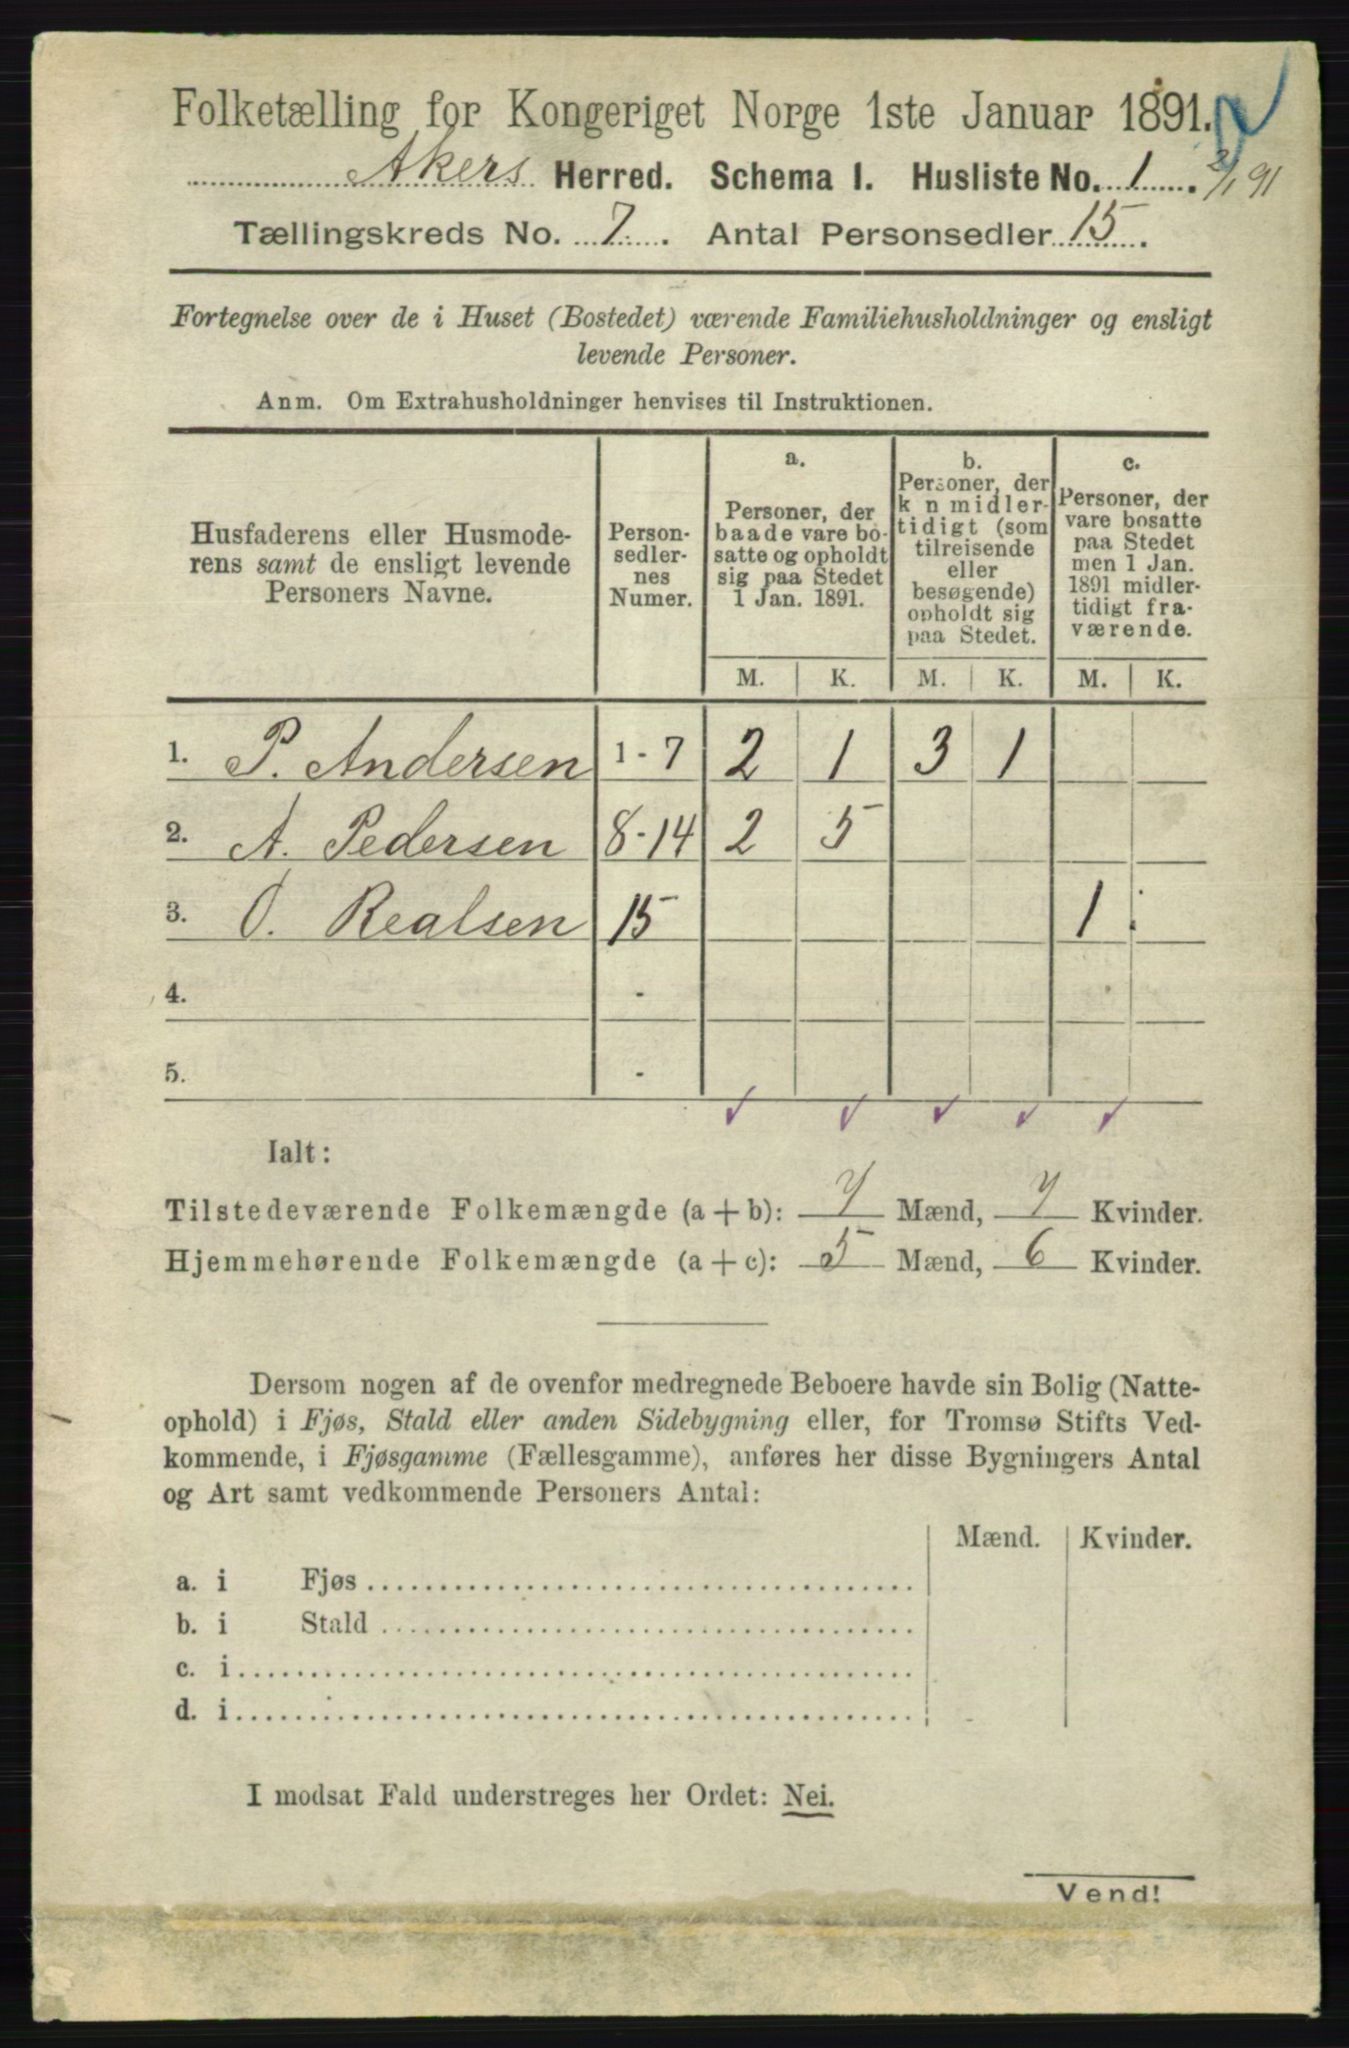 Folketælling for Kongeriget Norge 1ste Januar 1891.
Akers Herred. Schema I. Husliste No. 1. 2/1 91
Tællingskreds No. 7. Antal Personsedler 15.
Fortegnelse over de i Huset (Bostedet) værende Familiehusholdninger og ensligt
levende Personer.
Anm. Om Extrahusholdninger henvises til Instruktionen.
Husfaderens eller Husmode-
rens samt de ensligt levende
Personers Navne.
Person-
sedler-
nes
Numer.
a.
Personer, der
baade vare bo-
satte og opholdt
sig paa Stedet
1 Jan. 1891.
b.
Personer, der
k n midler-
tidigt (som
tilreisende
eller
besøgende)
opholdt sig
paa Stedet.
c.
Personer, der
vare bosatte
paa Stedet
men 1 Jan.
1891 midler-
tidigt fra-
værende.
M. K. M. K. M. K.
1. P. Andersen 1 - 7 2 1 3 1
2. A. Pedersen 8 - 14 2 5
3. O. Realsen 15 1
4. -
5. -
Ialt:
Tilstedeværende Folkemængde (a + b): 7 Mænd, 7 Kvinder.
Hjemmehørende Folkemængde (a + c): 5 Mænd, 6 Kvinder.
Dersom nogen af de ovenfor medregnede Beboere havde sin Bolig (Natte-
ophold) i Fjøs, Stald eller anden Sidebygning eller, for Tromsø Stifts Ved-
kommende, i Fjøsgamme (Fællesgamme), anføres her disse Bygningers Antal
og Art samt vedkommende Personers Antal:
Mænd. Kvinder.
a. i Fjøs
b. i Stald
c. i
d. i
I modsat Fald understreges her Ordet: Nei.
Vend!